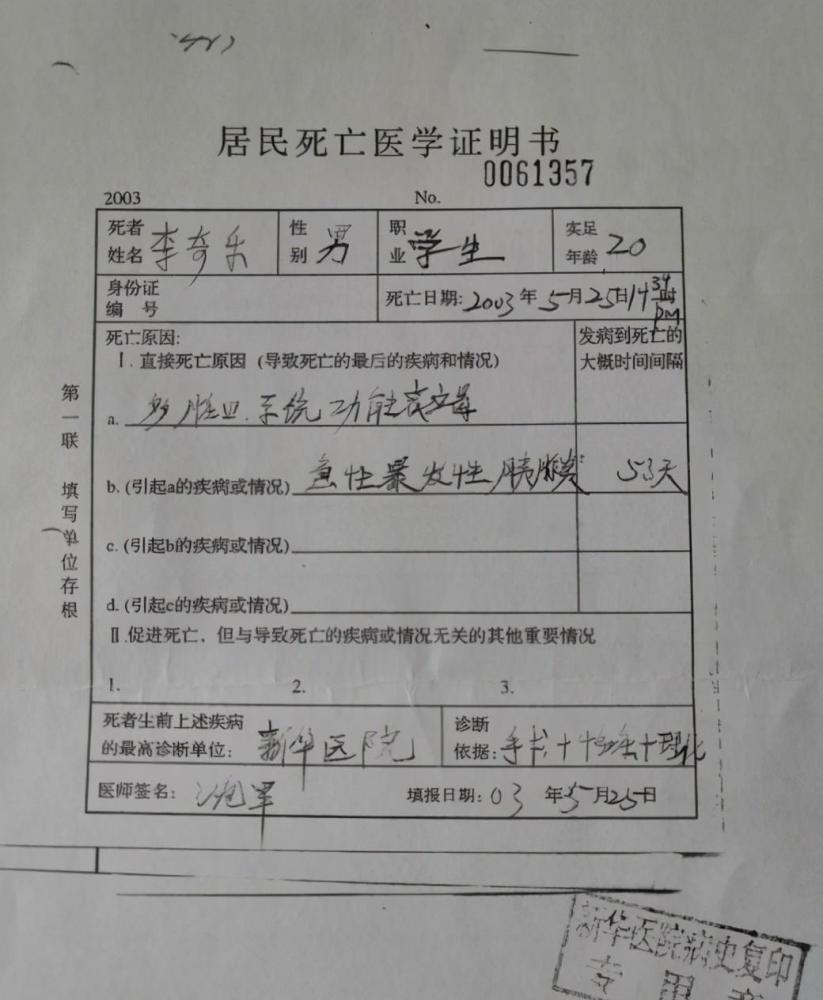 居民死亡医学证明书
2003 No. 0061357
死者姓名 李奇乐 性别 男 职业 学生 实足年龄 20
身份证编号 死亡日期: 2003年5月25日14 39时 PM
死亡原因: 发病到死亡的
Ⅰ.直接死亡原因 (导致死亡的最后的疾病和情况) 大概时间间隔
a. 多脏.系统功能衰竭
b. (引起a的疾病或情况) 急性暴发性胰腺炎 53天
c. (引起b的疾病或情况)
d. (引起c的疾病或情况)
Ⅱ.促进死亡，但与导致死亡的疾病或情况无关的其他重要情况
1. 2. 3.
死者生前上述疾病的最高诊断单位: 新华医院 诊断依据: 手术+ +理化
医师签名: 填报日期: 03年5月25日
第一联 填写单位存根
新华医院病史复印
专用章